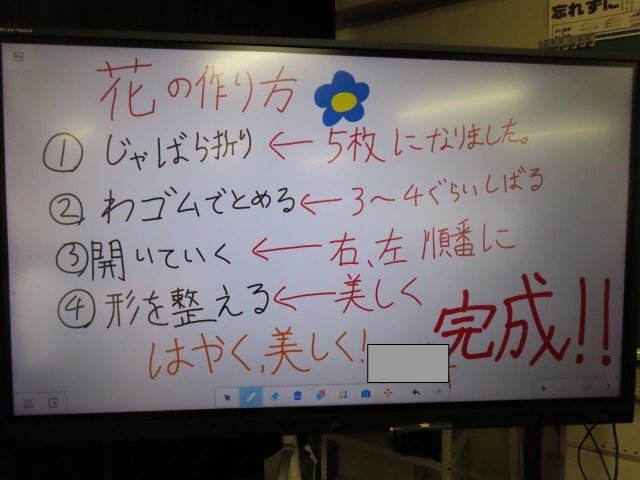 忘れずに
花の作り方
① じゃばら折り ← 5枚になりました。
② わゴムでとめる ← 3〜4ぐらいしばる
③ 開いていく ← 右、左 順番に
④ 形を整える ← 美しく
はやく、美しく! 完成!!